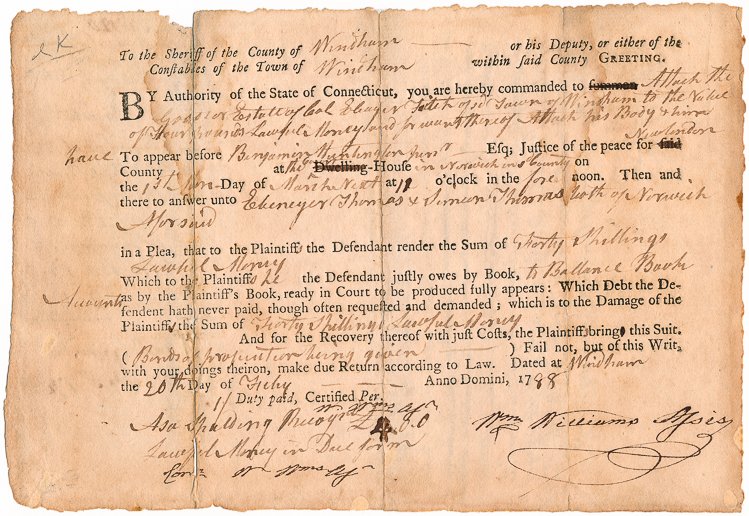 To the Sheriff of the County of Windham or his Deputy, or either of the
Constables of the Town of Windham within said County GREETING.
BY Authority of the State of Connecticut, you are hereby commanded to summon Attach the
Goods or Estate of Col Ebenezer of sd Town of Windham to the Value
of Four Pounds Lawful Money and for want thereof Attach his Body & him
have To appear before Benjamin Huntington Junr Esq; Justice of the peace for said Newlondon
County at the Dwelling-House in Norwich in sd County on
the 1st Mon-Day of March Next at o'clock in the fore noon. Then and
there to answer unto Ebenezer Thomas & Simeon Thomas both of Norwich
Aforsaid
in a Plea, that to the Plaintiffs the Defendant render the Sum of Forty Shillings
Lawful Money
Which to the Plaintiffs he the Defendant justly owes by Book, to Ballance Book
Accounts as by the Plaintiff's Book, ready in Court to be produced fully appears: Which Debt the De-
fendent hath never paid, though often requested and demanded; which is to the Damage of the
Plaintiffs, the Sum of Forty Shillings Lawful Money
And for the Recovery thereof with just Costs, the Plaintiffs bring this Suit.
(Bonds of prosecution being given) Fail not, but of this Writ,
with your doings theiron, make due Return according to Law. Dated at Windham
the 20th Day of Feby Anno Domini, 1788
1/ Duty paid, Certified Per. Wm Wms
Asa Spalding Recogd £4.0.0
Lawful Money in Due form Wm Williams Assis